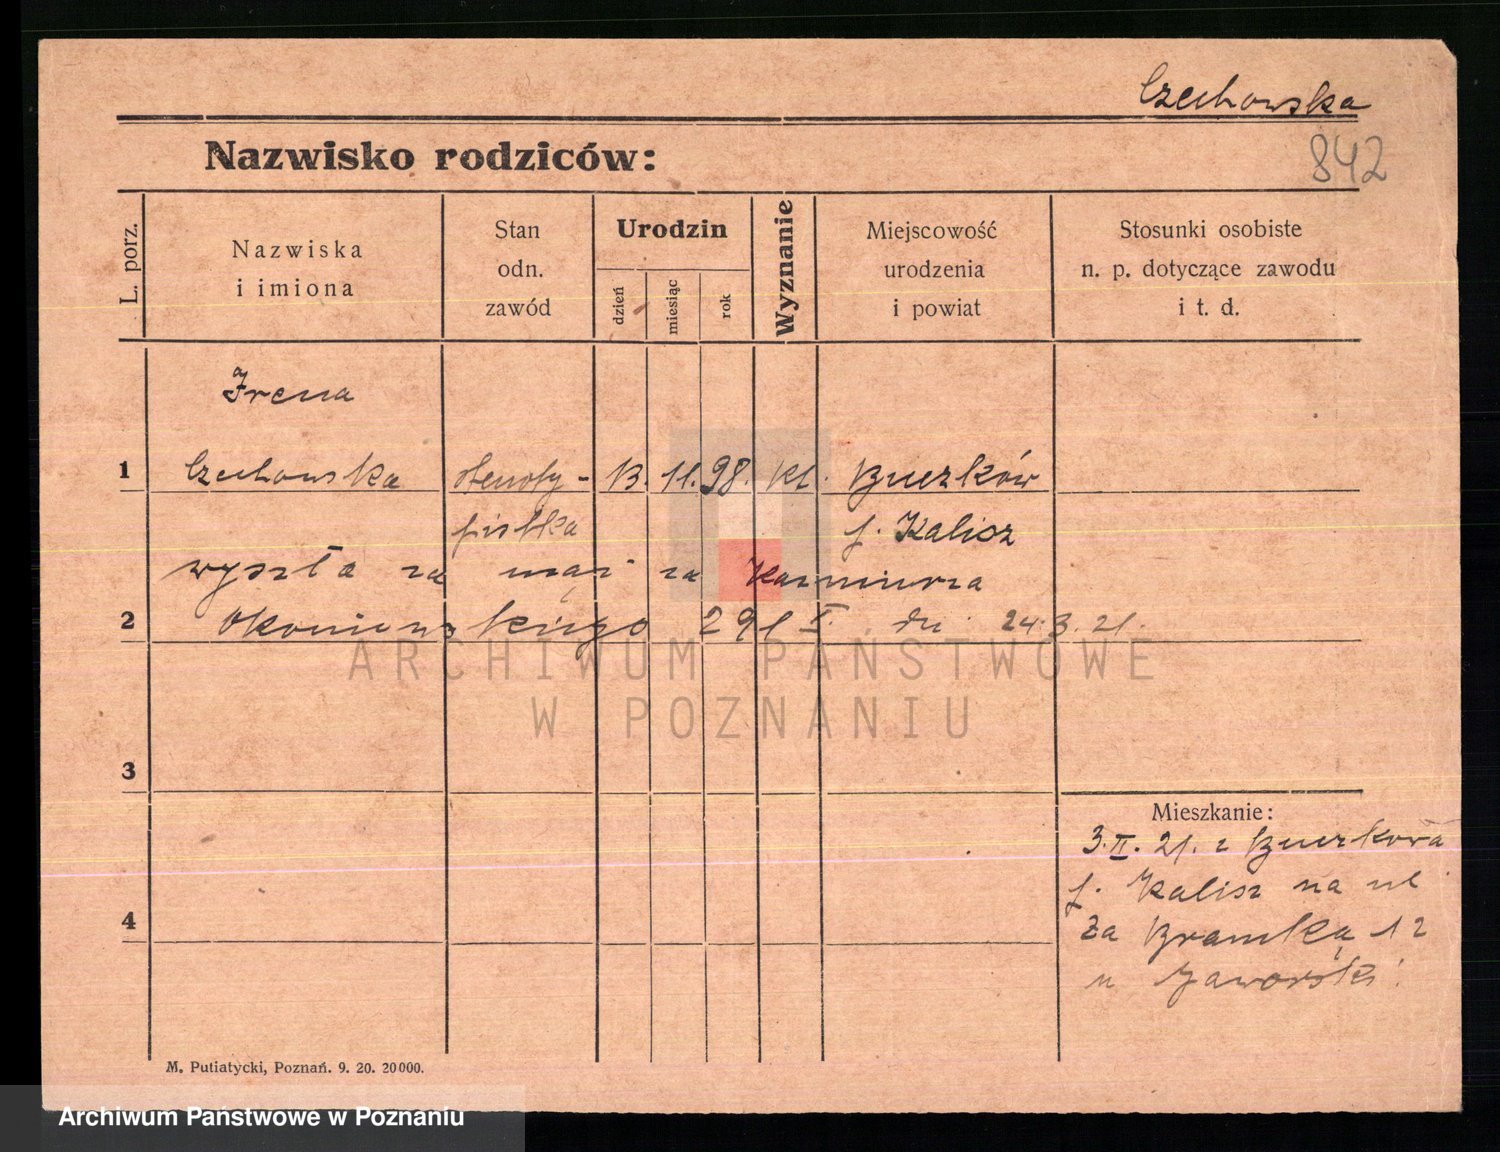 Czechowska
Nazwisko rodziców:
842
L. porz.
Nazwiska
i imiona
Stan
odn.
zawód
Urodzin
dzień
miesiąc
rok
Wyznanie
Miejscowość
urodzenia
i powiat
Stosunki osobiste
n. p. dotyczące zawodu
i t. d.
Irena
1 Czechowska stenoty- 13. 11. 98. kt. Buczków
pistka p. Kalisz
wyszła za mąż za Kazimierza
2 Okoniewskiego dn. 24.3.21.
ARCHIWUM PAŃSTWOWE
W POZNANIU
3
Mieszkanie:
3.II.21. z Buczkowa
p. Kalisz na ul.
4 Za Bramką 12
u Jaworski
M. Putiatycki, Poznań. 9. 20. 20000.
Archiwum Państwowe w Poznaniu